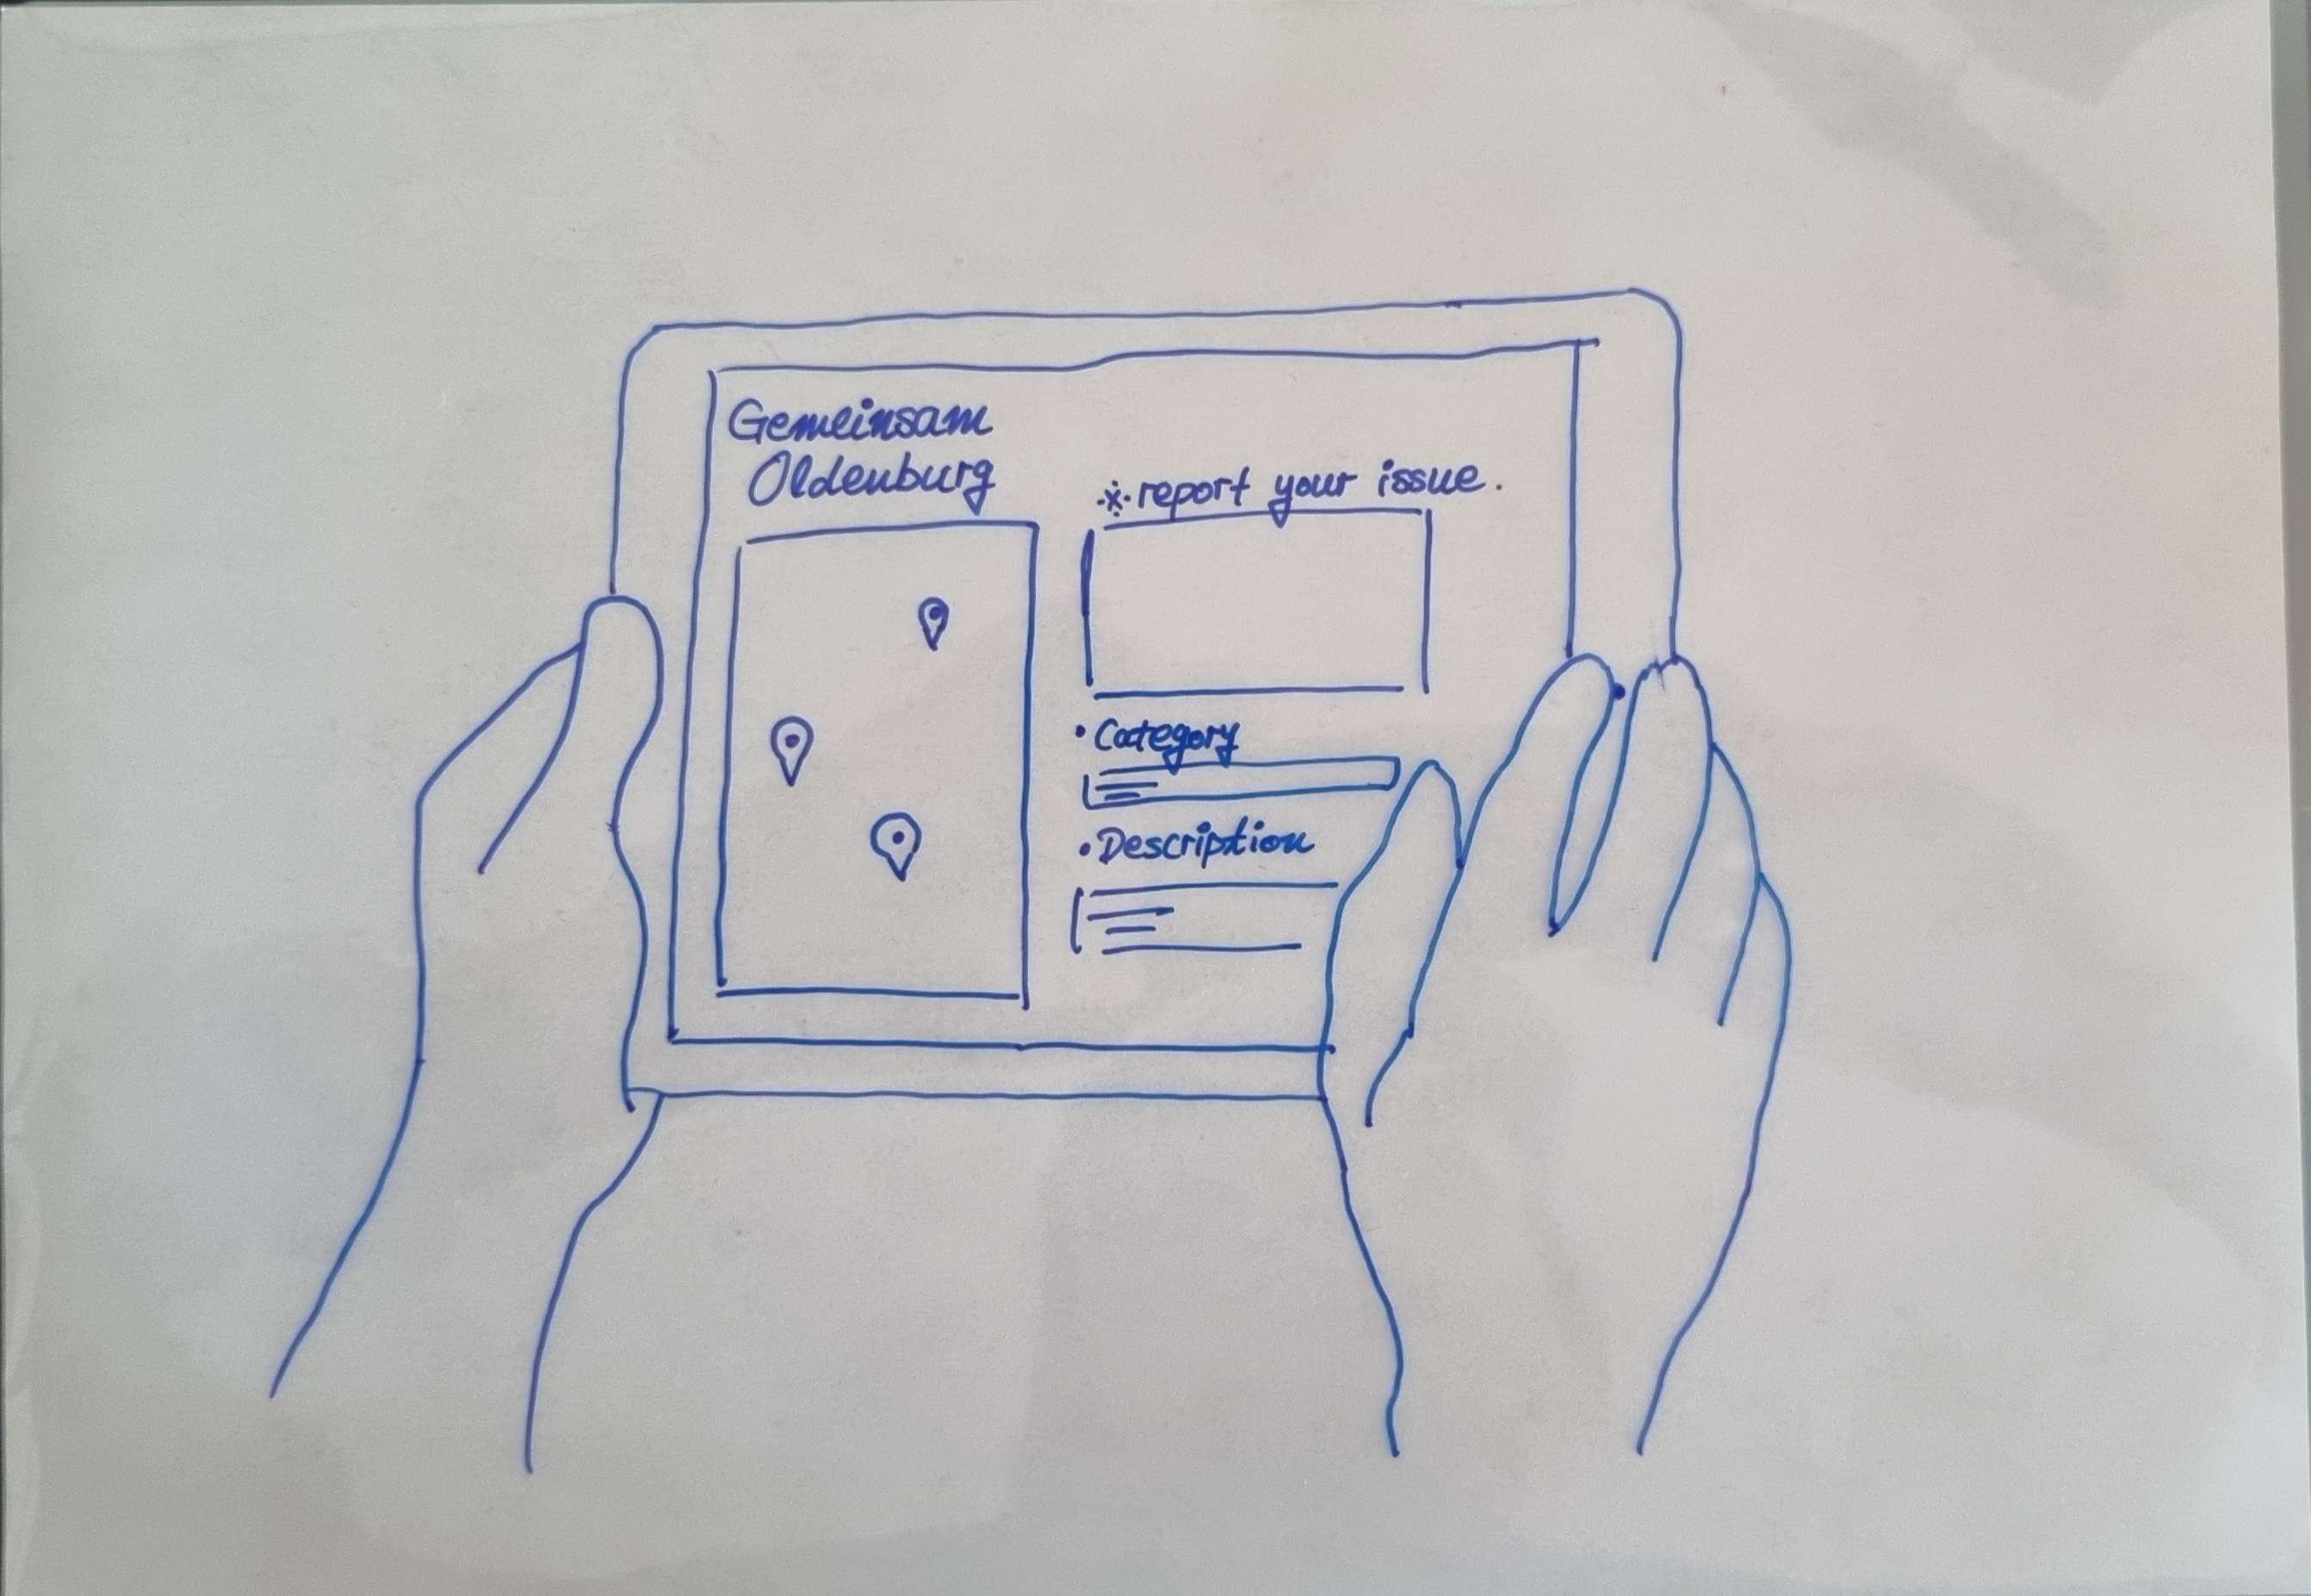 Gemeinsam
Oldenburg
※ report your issue.
• Category
• Description